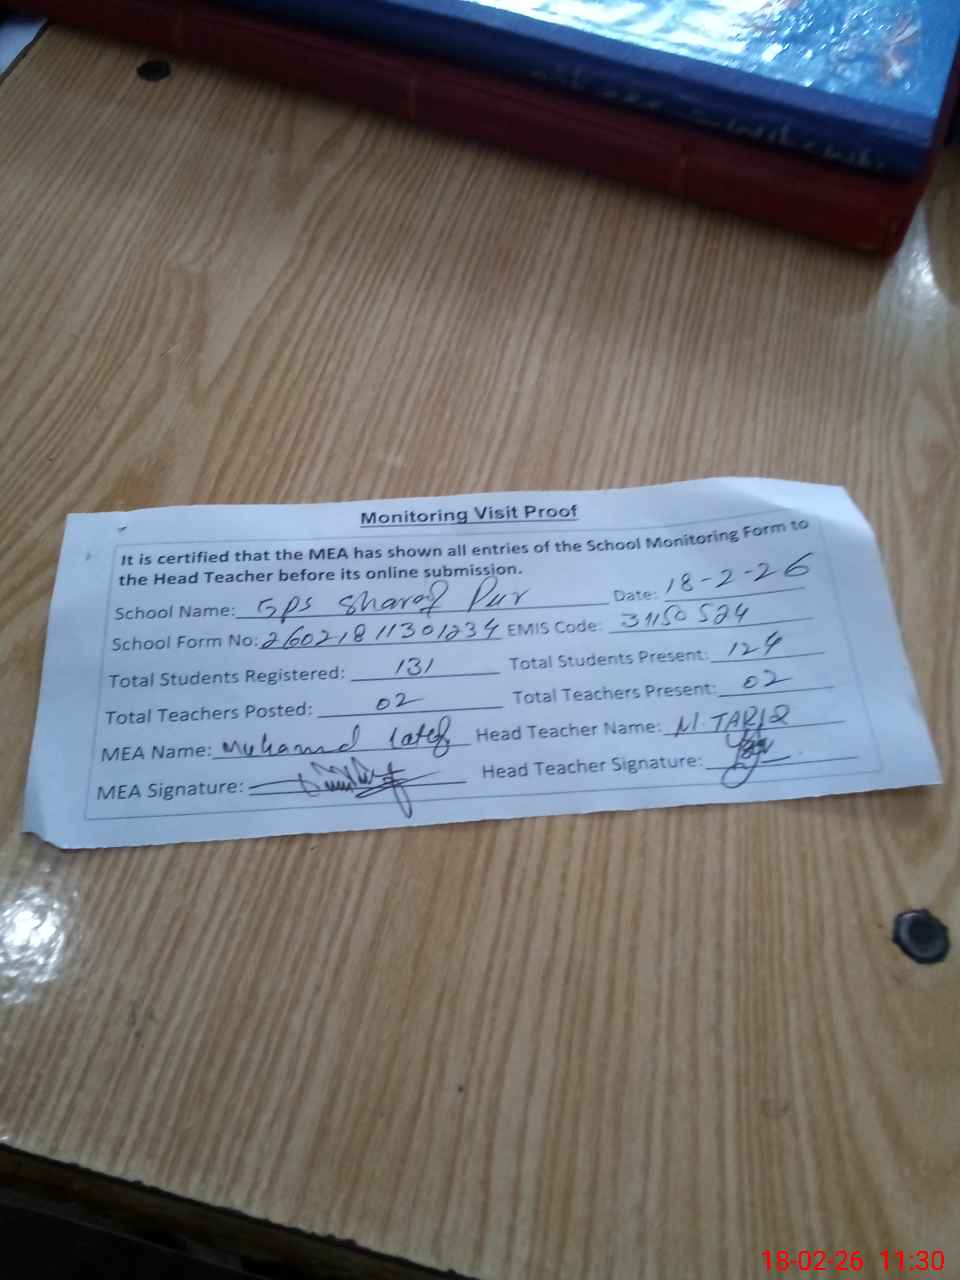 Monitoring Visit Proof
It is certified that the MEA has shown all entries of the School Monitoring Form to
the Head Teacher before its online submission.
School Name: GPS Sharaf Pur Date: 18-2-26
School Form No: 26021811301234 EMIS Code: 31150524
Total Students Registered: 131 Total Students Present: 124
Total Teachers Posted: 02 Total Teachers Present: 02
MEA Name: Muhammd latef Head Teacher Name: M. TARIQ
MEA Signature: Head Teacher Signature:
18-02-26 11:30